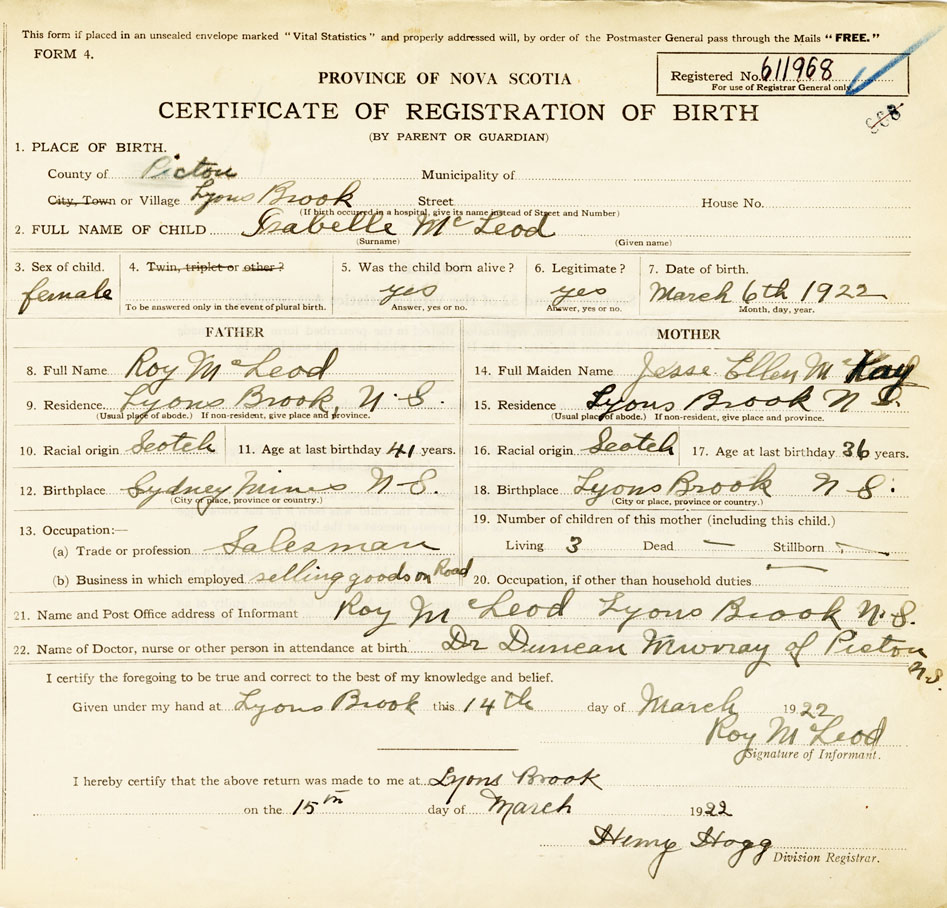 This form if placed in an unsealed envelope marked "Vital Statistics" and properly addressed will, by order of the Postmaster General pass through the Mails "FREE."
FORM 4.
PROVINCE OF NOVA SCOTIA
Registered No. 611968
For use of Registrar General only
CERTIFICATE OF REGISTRATION OF BIRTH
(BY PARENT OR GUARDIAN)
1. PLACE OF BIRTH.
County of Pictou Municipality of
City, Town or Village Lyons Brook Street House No.
(If birth occurred in a hospital, give its name instead of Street and Number)
2. FULL NAME OF CHILD Isabelle McLeod
(Surname) (Given name)
3. Sex of child. 4. Twin, triplet or other? 5. Was the child born alive? 6. Legitimate? 7. Date of birth.
female yes yes March 6th 1922
To be answered only in the event of plural birth. Answer, yes or no. Answer, yes or no. Month, day, year.
FATHER MOTHER
8. Full Name Roy McLeod 14. Full Maiden Name Jesse Ellen McKay
9. Residence Lyons Brook, N.S. 15. Residence Lyons Brook N S.
(Usual place of abode.) If non-resident, give place and province. (Usual place of abode.) If non-resident, give place and province.
10. Racial origin Scotch 11. Age at last birthday 41 years. 16. Racial origin Scotch 17. Age at last birthday 36 years.
12. Birthplace Sydney Mines N-S. 18. Birthplace Lyons Brook N S.
(City or place, province or country.) (City or place, province or country.)
13. Occupation:— 19. Number of children of this mother (including this child.)
(a) Trade or profession Salesman Living 3 Dead — Stillborn —
(b) Business in which employed selling goods on Road 20. Occupation, if other than household duties —
21. Name and Post Office address of Informant Roy McLeod Lyons Brook N.S.
22. Name of Doctor, nurse or other person in attendance at birth Dr Duncan Murray of Pictou N.S.
I certify the foregoing to be true and correct to the best of my knowledge and belief.
Given under my hand at Lyons Brook this 14th day of March 1922
Roy McLeod
Signature of Informant.
I hereby certify that the above return was made to me at Lyons Brook
on the 15th day of March 1922
Henry Hogg
Division Registrar.